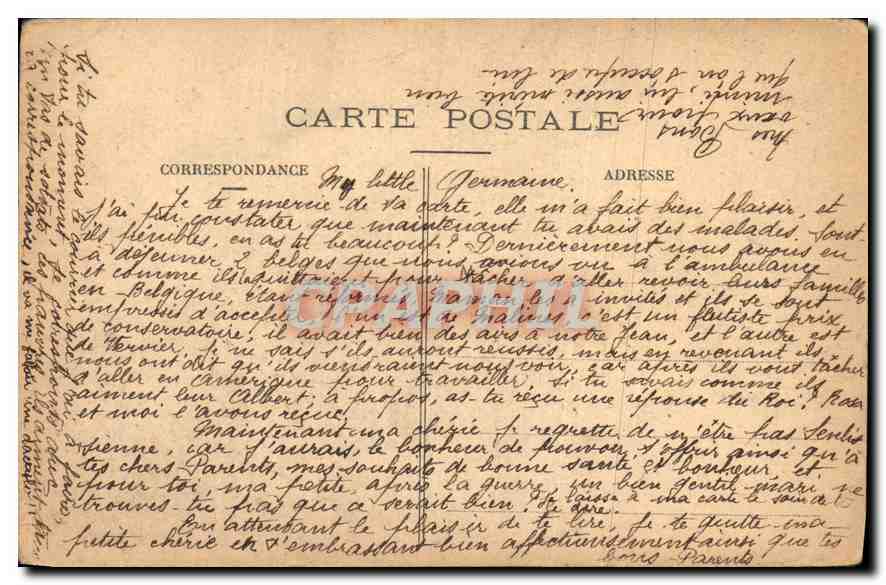 CARTE POSTALE
CORRESPONDANCE
ADRESSE
My little Germaine.
Je te remercie de ta carte, elle m'a fait bien plaisir, et
j'ai pu constater que maintenant tu avais des malades. Sont-
ils pénibles, en as tu beaucoup? Dernièrement nous avons eu
à déjeuner 2 belges que nous avions vu à l'ambulance
et comme ils quittaient pour tâcher d'aller revoir leurs familles
en Belgique, étant réformés, Maman les a invités et ils se sont
empressés d'accepter. L'un est de c'est un flutiste prix
de conservatoire, il avait bien des airs à notre Jean, et l'autre est
de Vervier. Je ne sais s'ils auront réussis, mais en revenant ils
nous ont dit qu'ils viendraient nous voir, car après ils vont tâcher
d'aller en Amérique pour travailler. Si tu savais comme ils
aiment leur Albert; à propos, as-tu reçu une réponse du Roi? Rosa
et moi l'avons reçue!
Maintenant ma chérie je regrette de n'être pas Senlis-
sienne, car j'aurais le bonheur de pouvoir t'offrir ainsi qu'à
tes chers Parents, mes souhaits de bonne santé et bonheur, et
pour toi, ma petite, après la guerre, un bien gentil mari ne
trouves-tu pas que ce serait bien! Je laisse à ma carte le soin de te
le dire.
En attendant le plaisir de te lire, je te quitte ma
petite chérie en t'embrassant bien affectueusement ainsi que tes
bons Parents
Si tu savais le courrier que j'ai à faire,
pour le moment, je corresponds avec
un tas de soldats, les pauvres ils aiment
la correspondance, il va me falloir un
mes Bons
vœux pour
mimi, lui aussi mérite bien
qu'on s'occupe de lui
CPAPHIL